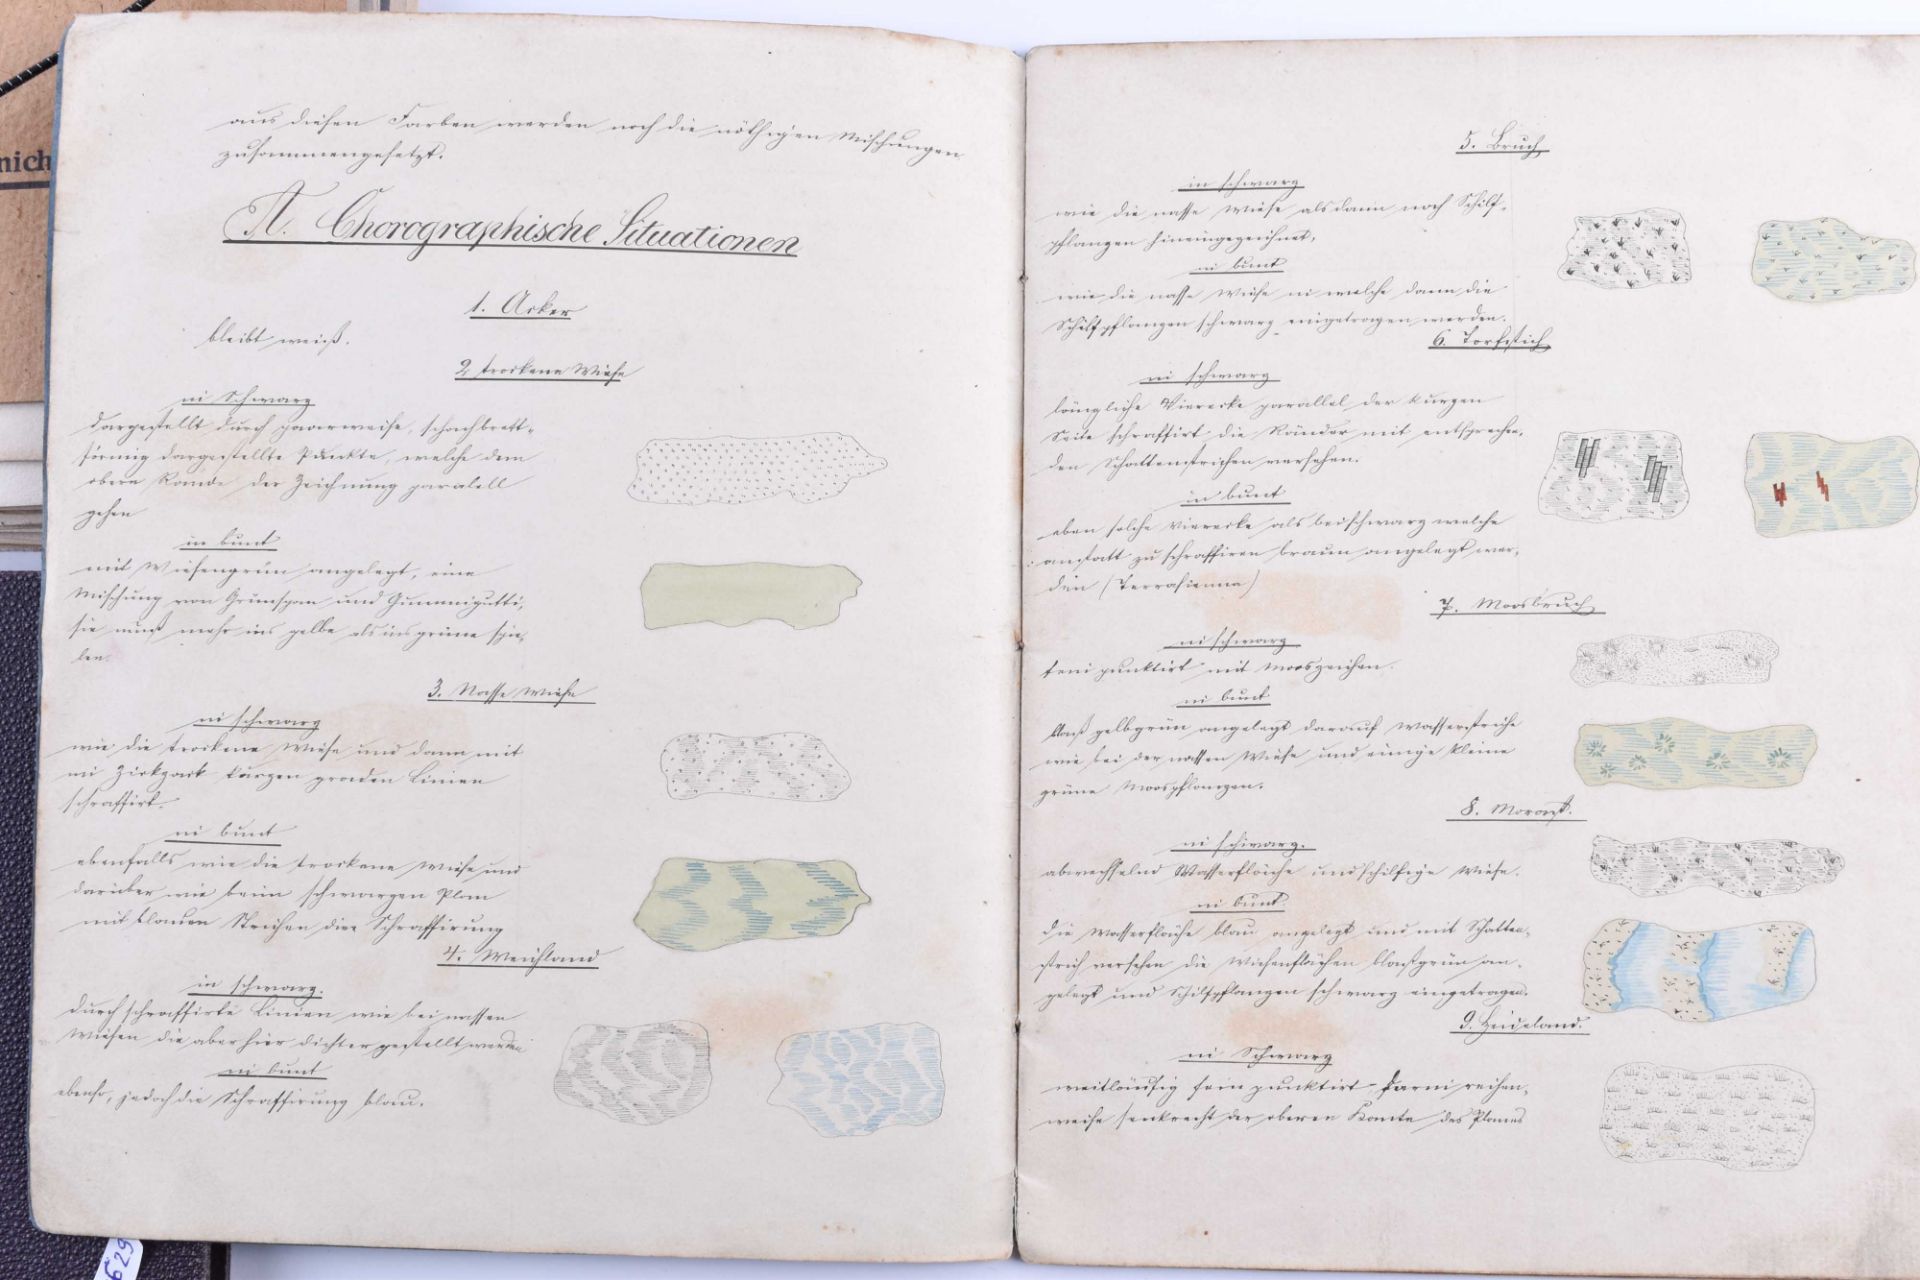 aus diesen Farben werden noch die nöthigen Mischungen
zusammengesetzt.
A. Chorographische Situationen
1. Acker
bleibt weiß.
2 trockene Wiese
in Schwarz
dargestellt durch paarweise, schachbrett-
förmig dargestellte Punkte, welche dem
obern Rande der Zeichnung paralell
gehen
in bunt
mit Wiesengrün angelegt, eine
Mischung von Grünspan und Gummigutti,
sie muß mehr ins gelbe als ins grüne spie-
len.
3. Nasse Wiese
in schwarz
wie die trockene Wiese und dann mit
in Zickzack kurzen graden Linien
schraffirt.
in bunt
ebenfalls wie die trockene Wiese und
darüber wie beim schwarzen Plan
mit blauen Strichen die Schraffirung
4. Weichland
in schwarz.
durch schraffirte Linien wie bei nassen
Wiesen die aber hier dichter gestellt werden
in bunt
ebenso, jedoch die Schraffirung blau.
5. Bruch
in schwarz
wie die nasse Wiese alsdann noch Schilf-
pflanzen hineingezeichnet,
in bunt
wie die nasse Wiese in welche dann die
Schilfpflanzen schwarz eingetragen werden.
6. Torfstich
in schwarz
längliche Vierecke parallel der kurzen
Seite schraffirt die Ränder mit entsprechen-
den Schattenstrichen versehen.
in bunt
eben solche Vierecke als bei schwarz welche
anstatt zu schraffiren braun angelegt wer-
den (Terrasienna)
7. Moosbruch
in schwarz
fein punktirt mit Mooszeichen.
in bunt
blaß gelbgrün angelegt darauf Wasserstriche
wie bei der nassen Wiese und einige kleine
grüne Moospflanzen.
8. Morast.
in schwarz.
abwechselnd Wasserfläche und schilfige Wiese.
in bunt.
die Wasserfläche blau angelegt und mit Schatten-
strich versehen die Wiesenflächen blaßgrün an-
gelegt und Schilfpflanzen schwarz eingetragen.
9. Heideland.
in Schwarz
weitläufig fein punktirt darin reihen-
weise senkrecht der oberen Kante des Planes
nich
629